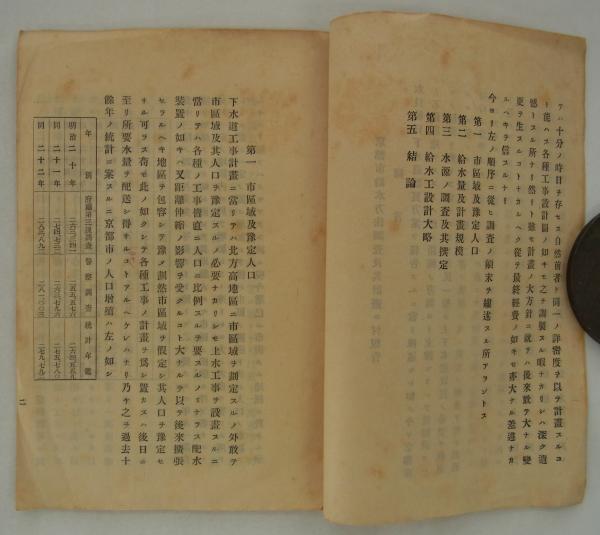 テハ十分ノ時日ヲ存セス自然前者ト同一ノ詳密度ヲ以テ計畫スルコ
ト能ハス各種工事設計圖ノ如キモ之ヲ調製スル暇ナカリシハ深ク遺
憾トスル所ナリ然リト雖モ計畫ノ大方針ニ就テハ後來敢テ大ナル變
更ヲ生スルコトナカルヘク從テ最終經費ノ如キモ亦大ナル差違ナカ
ルヘキヲ信スルナリ
今ヨリ左ノ順序ニ從ヒ調査ノ顚末ヲ縷述スル所アラントス
第一 市區域及豫定人口
第二 給水量及計畫規模
第三 水源ノ調査及其撰定
第四 給水工設計大略
第五 結論
第一 市區域及豫定人口
下水道工事計畫ニ當リテハ北方高地區ニ市區域ヲ劃定スルノ外敢テ
市區域及其人口ヲ豫定スルノ必要ナカリシモ上水工事ヲ設畫スルニ
當リテハ各種ノ工事皆直ニ人口ニ比例スルヲ要スルノミナラス配水
裝置ノ如キハ又距離伸縮ノ影響ヲ受クルコト大ナルヲ以テ後來擴張
セラルヘキ地區ヲ包容シテ豫メ劃然市區域ヲ假定シ其人口ヲ豫定セ
サル可ラス奇モ此ノ如クシテ各種工事ノ計畫ヲ爲シ置カスハ後日ニ
至リ所要水量ヲ配送シ得サルコトアルヘケレハナリ乃チ之ヲ過去十
餘年ノ統計ニ案スルニ京都市ノ人口增殖ハ左ノ如シ
年別 府廳第三課調査 警察調査 統計年鑑
明治二十年
同二十一年
同二十二年
二